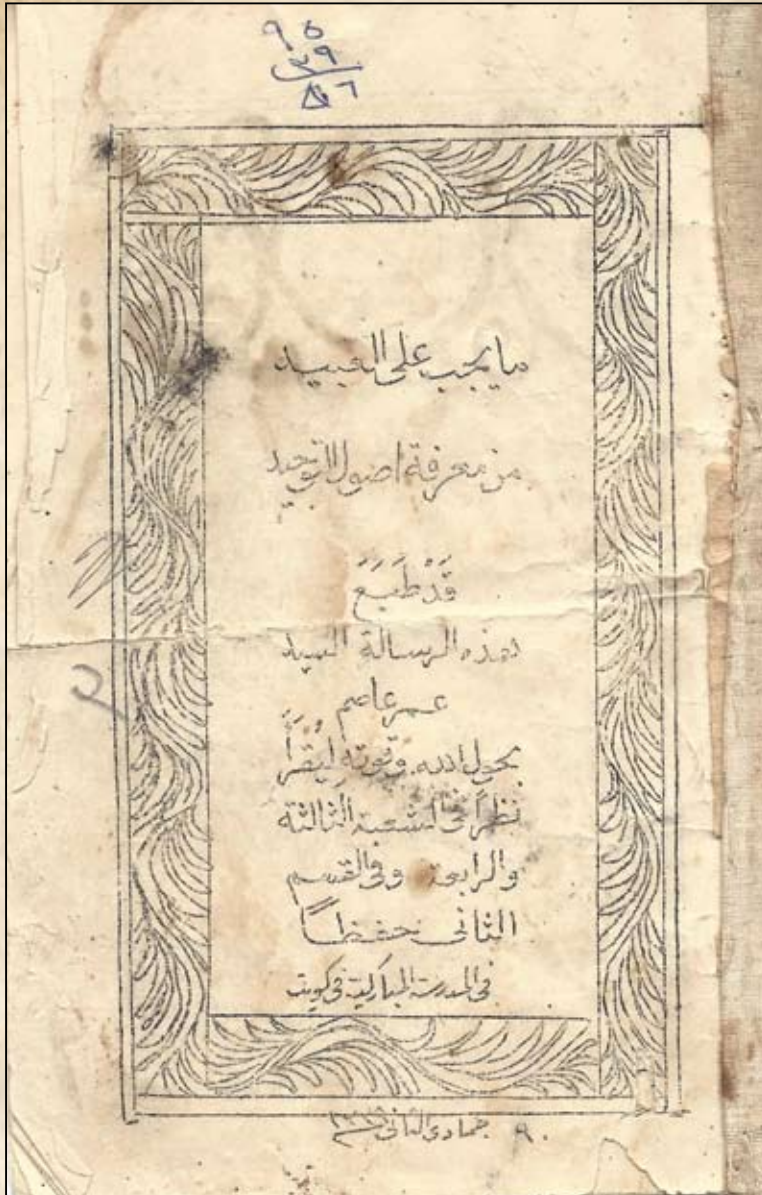 ٩ ٥
٣٩
٥٦
ما يجب على العبيد
من معرفة اصول التوحيد
قَدْ طَبَعَ
هذه الرسالة السيد
عمر عاصم
بحول الله وقوته لِيُقْرَأَ
نظراً في الشعبة الثالثة
والرابعة وفي القسم
الثاني حفظاً
في المدرسة المباركية في كويت
٩ جمادى الثاني